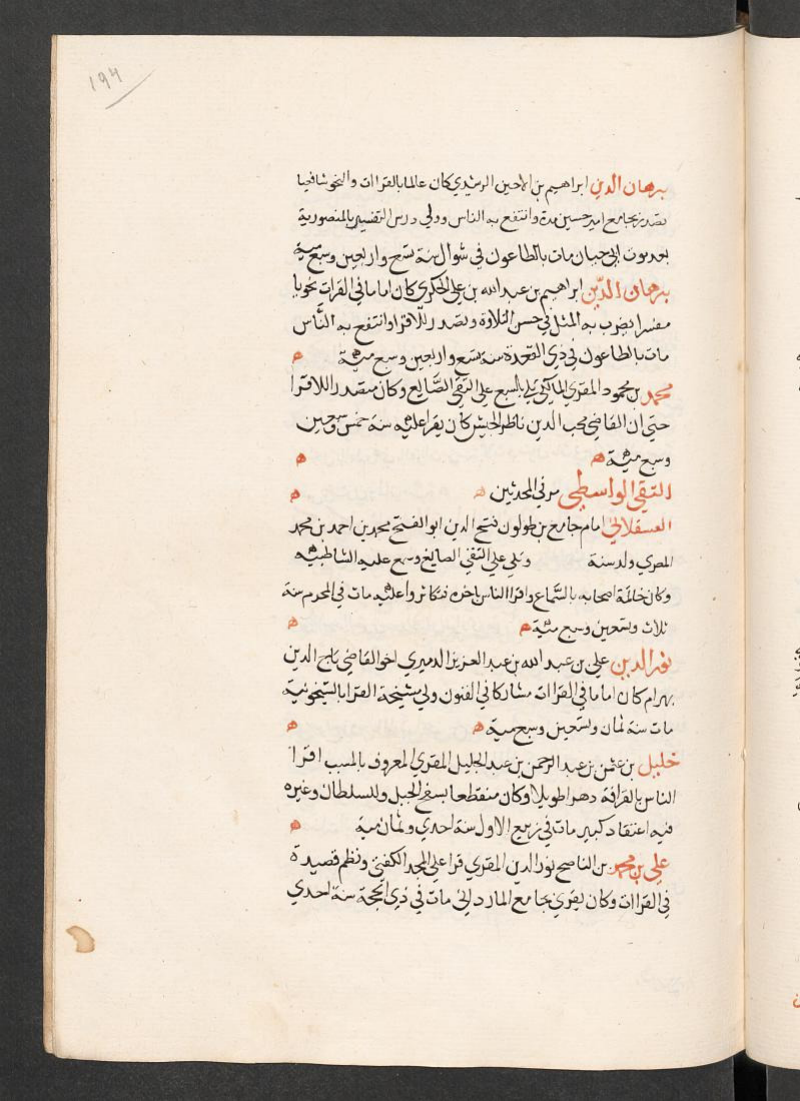 194
برهان الدين ابراهيم بن لاجين الرشيدي كان عالما بالقراات والنحو شافعيا
تصدر بجامع امير حسين مدة وانتفع به الناس وولي درس التفسير بالمنصورية
بعد موت ابي حيان مات بالطاعون في شوال سنة تسع واربعين وسبع مية
برهان الدين ابراهيم بن عبد الله بن علي الحكري كان اماما في القرات نحويا
مفسرا يضرب به المثل في حسن التلاوة وتصدر للاقرا وانتفع به الناس
مات بالطاعون في ذي القعدة سنة تسع واربعين وسبع مئية ه
محمد بن محمود المقري المالكي تلي بالسبع علي التقي الصايغ وكان متصدرا للاقرا
حتي ان القاضي محب الدين ناظر الجيش كان يقرا عليه سنة خمس وسبعين
وسبع مئية ه ه
التقي الواسطي مر في المحدثين ه ه
العسقلاني امام جامع بن طولون فتح الدين ابو الفتح محمد بن احمد بن محمد
المصري ولد سنة وتلي علي التقي الصايغ وسمع عليه الشاطبية
وكان خاتمة اصحابه بالسماع واقرا الناس باخره فتكاثروا عليه مات في المحرم سنة
ثلاث وتسعين وسبع مئية ه ه
نور الدين علي بن عبد الله بن عبد العزيز الدميري اخو القاضي تاج الدين
بهرام كان اماما في القراات مشاركا في الفنون ولي مشيخة القرا بالشيخونية
مات سنة ثمان وتسعين وسبع مية ه ه
خليل بن عثمن بن عبد الرحمن بن عبد الجليل المقري المعروف بالمشبب اقرا
الناس بالقرافة دهرا طويلا وكان منقطعا بسفح الجبل وللسلطان وغيره
فيه اعتقاد كبير مات في ربيع الاول سنة احدي وثمان مية ه
علي بن محمد بن الناصح نور الدين المقري قرا علي المجد الكفتي ونظم قصيدة
في القراات وكان يقري بجامع المارداني مات في ذي الحجة سنة احدي